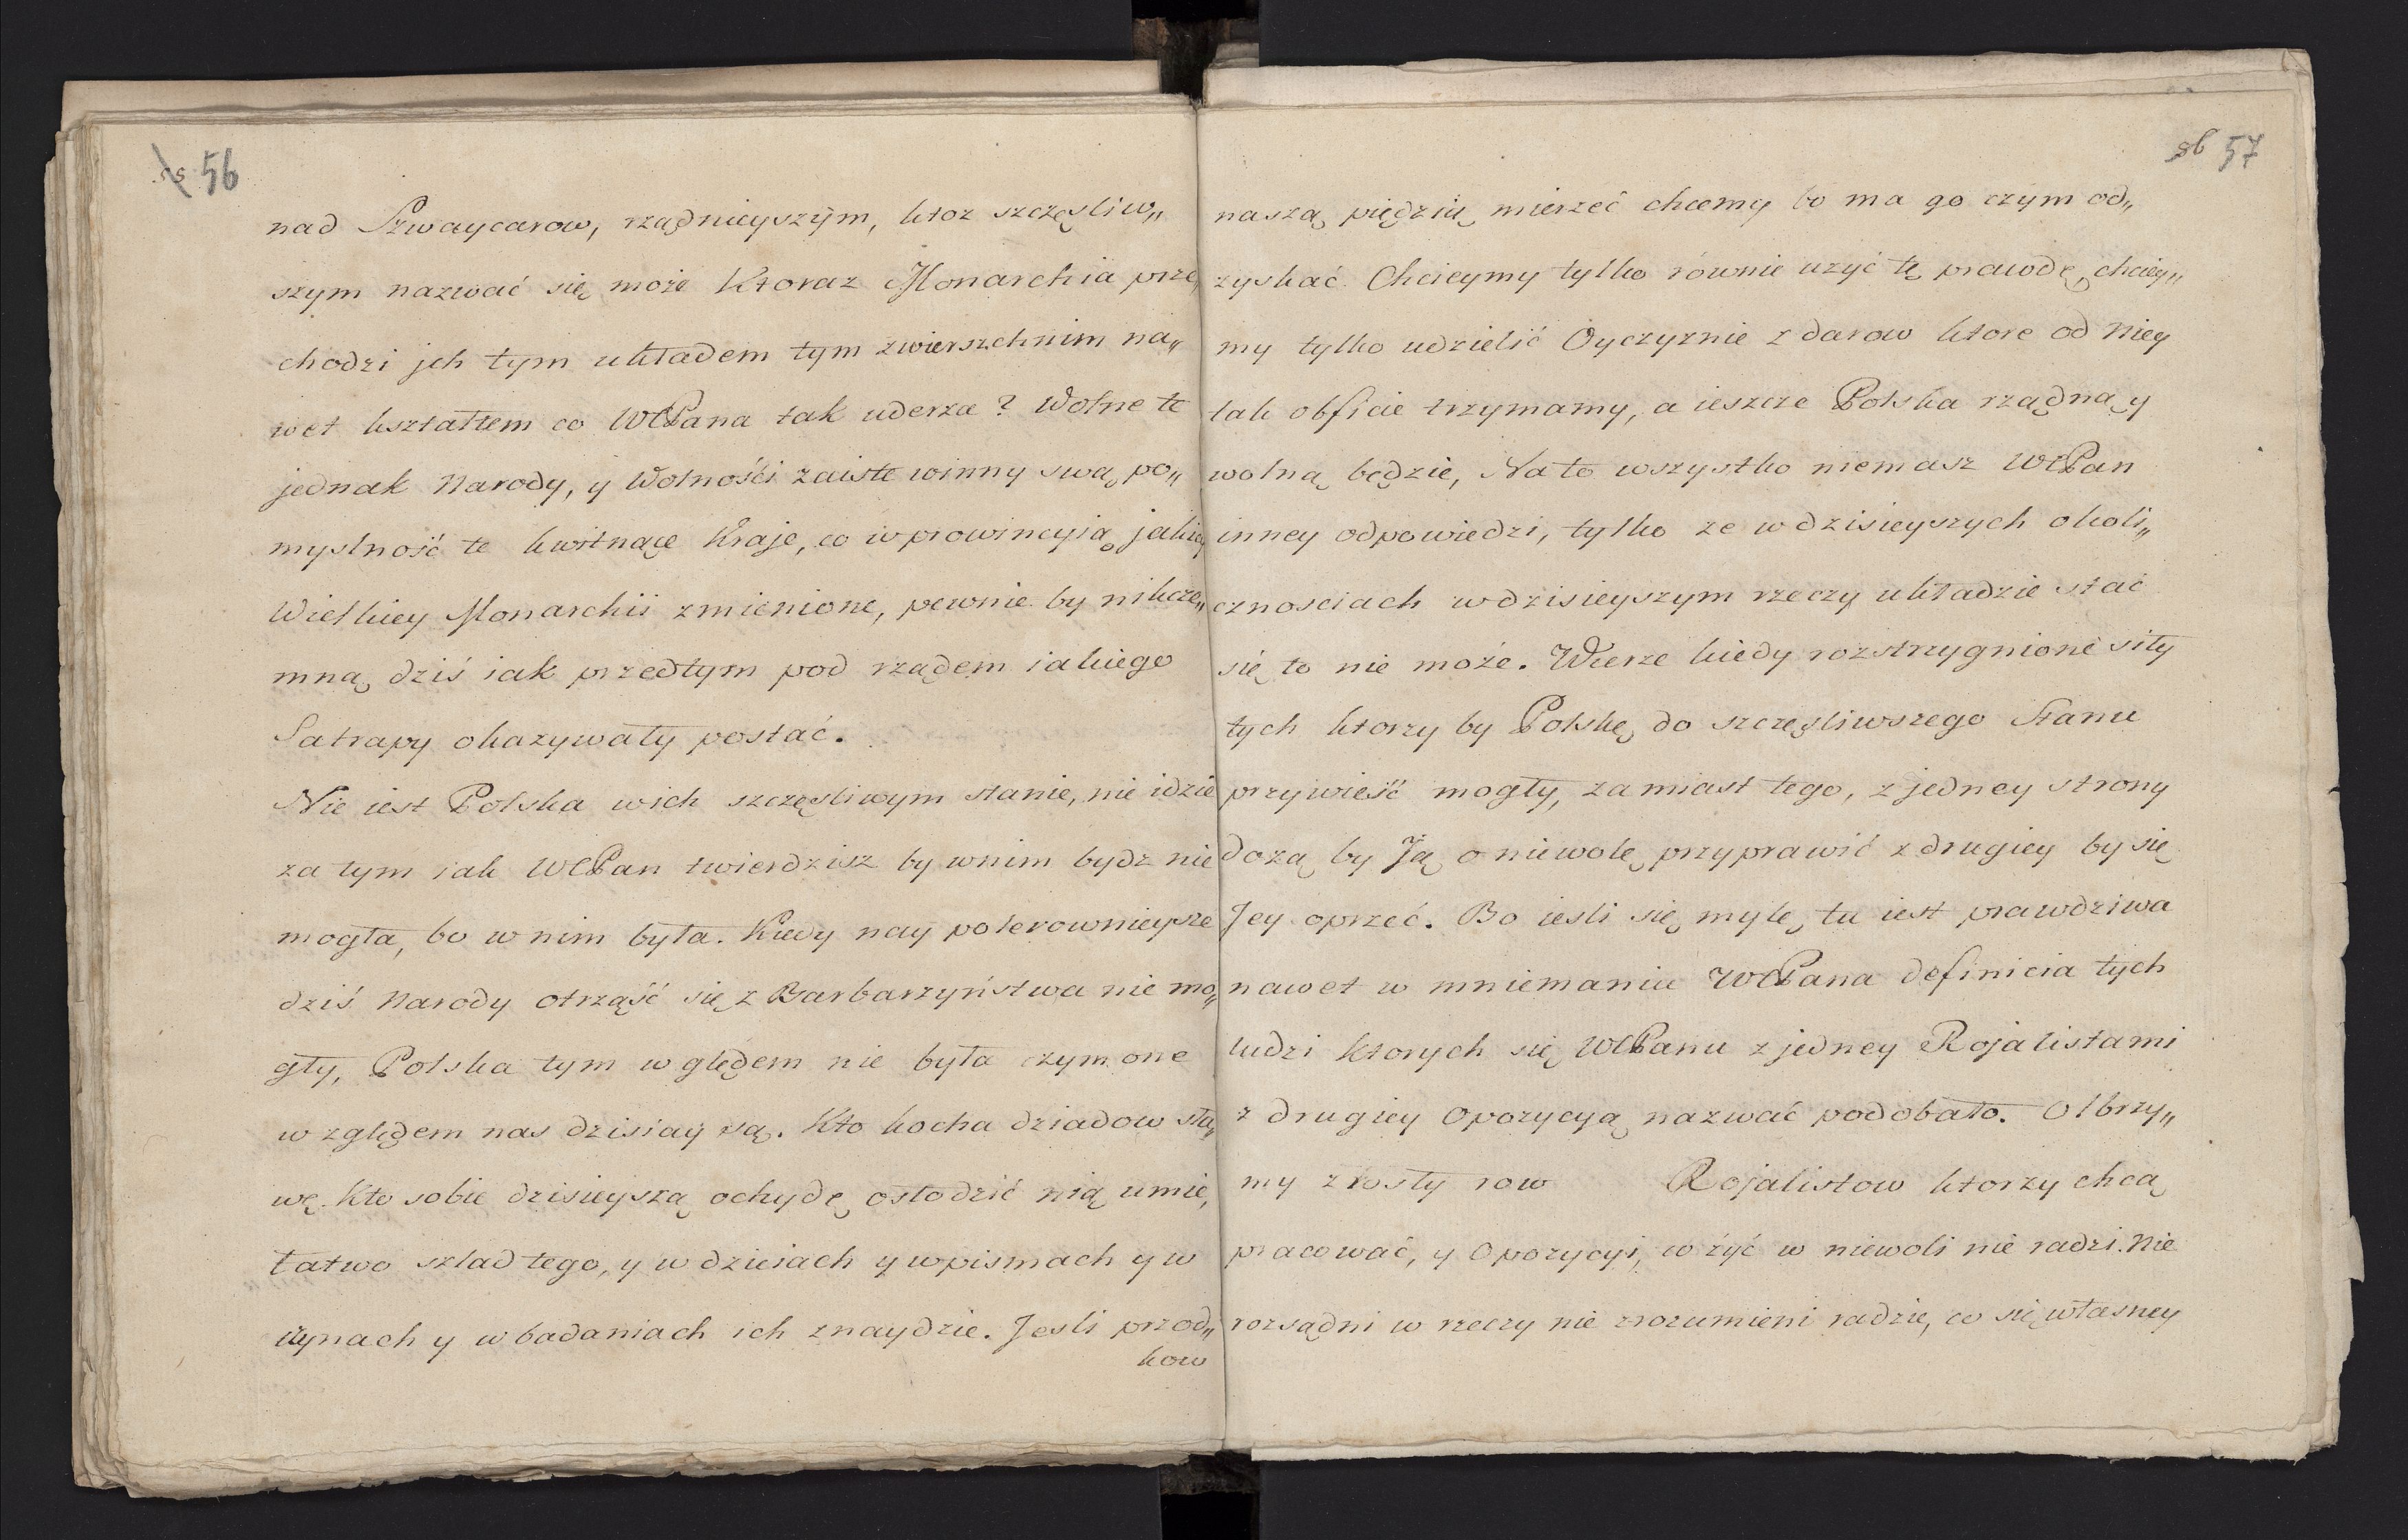 56
nad Szwaycarow, rządnieyszym, ktoz szczęsliw„
szym nazwać się może Ktoraz Monarchia prze„
chodzi jch tym układem tym zwierszchnim na„
wet kształtem co WCPana tak uderza? Wolne te
jednak Narody, y Wolnośći zaiste winny swą po„
myslność te kwitnące Kraje, co w prowincyią jakiey
Wielkiey Monarchii zmienione, pewnie by nikcze„
mną dziś iak przedtym pod rządem iakiego
Satrapy okazywały postać.
Nie iest Polska wich szczęsliwym stanie, nie idzie
za tym iak WCPan twierdzisz by wnim bydz nie
mogła, bo w nim była. Kiedy nay polerownieysze
dziś Narody otrząść się z Barbarzyństwa nie mo„
gły, Polska tym w ględem nie była czym one
w zględem nas dzisiay są. Kto kocha dziadow sła„
wę Kto sobie dzisieyszą ochydę osłodzić nią umie,
łatwo szlad tego, y w dzieiach y wpismach y w
czynach y w badaniach ich znaydzie. Jesli przod„
kow
57
naszą piędzią mierzeć chcemy bo ma go czym od„
zyskać. Chcieymy tylko równie uzyć tę prawdę, chciey„
my tylko udzielić Oyczyznie z darow ktore od Niey
tak obficie trzymamy, a ieszcze Polska rządną y
wolną będzie, Na to wszystko niemasz WCPan
inney odpowiedzi, tylko ze w dzisieyszych okoli„
cznosciach w dzisieyszym rzeczy układzie stać
się to nie może. Wierze kiedy rozstrzygnione siły
tych ktorzy by Polskę do szczęsliwszego Stanu
przywieść mogły, zamiast tego, z jedney strony
dozą by Ją o niewolę przyprawić z drugiey by się
Jey oprzeć. Bo iesli się mylę, tu iest prawdziwa
nawet w mniemaniu WCPana definicia tych
ludzi ktorych się WCPanu z jedney Rojalistami
z drugiey Opozycyą nazwać podobało. Olbrzy„
my zrosły row Rojalistow ktorzy chcą
pracować, y Opozycyi, co żyć w niewoli nie radzi. Nie
rozsądni w rzeczy nie zrozumieni radzie, co się własney